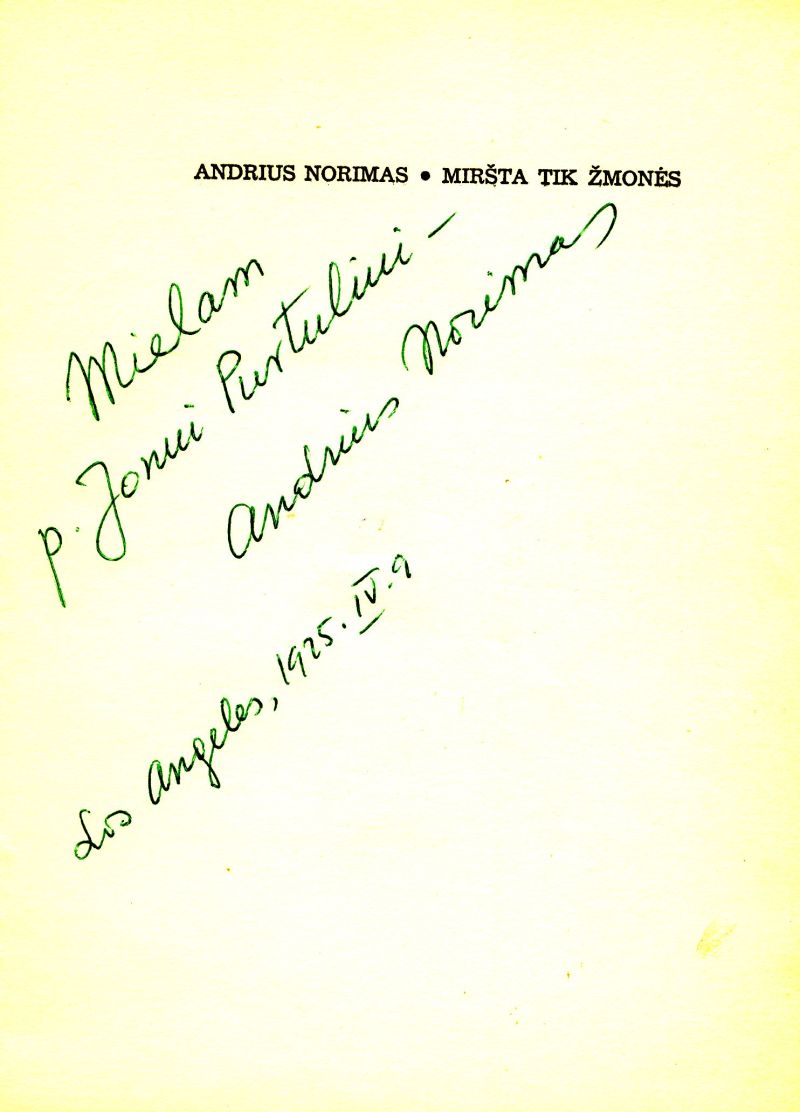 ANDRIUS NORIMAS • MIRŠTA TIK ŽMONĖS
Mielam
p. Jonui Purtuliui –
Andrius Norimas
Los Angeles, 1925. IV. 9